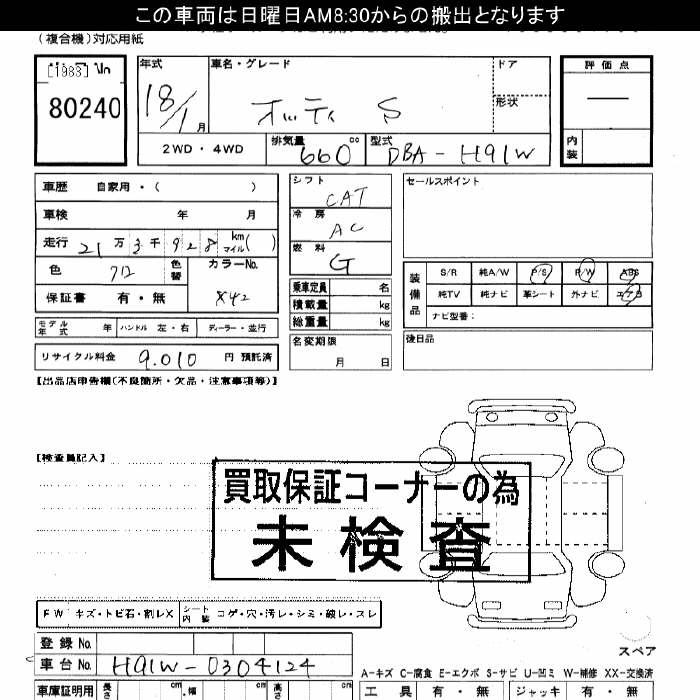 この車両は日曜日AM8:30からの搬出となります
(複合機)対応用紙
[1983]
80240
年式
18/1月
車名・グレード
オッティ S
ドア
形状
評価点
—
内装
2WD・4WD
排気量
660 cc
型式
DBA-H91W
車歴 自家用・( )
車検 年 月
走行 21万3千928 km マイル( )
色
色替
カラーNo.
X42
保証書 有・無
シフト
CAT
冷房
AC
燃料
G
乗車定員 名
積載量 kg
総重量 kg
セールスポイント
装備品
S/R 純A/W P/S P/W ABS
純TV 純ナビ 革シート 外ナビ エアB
ナビ型番:
モデル年式 年 ハンドル 左・右 ディーラー・並行
名変期限
月 日
後日品
リサイクル料金 9,010 円 預託済
【出品店申告欄(不良箇所・欠品・注意事項等)】
【検査員記入】
買取保証コーナーの為
未検査
FW キズ・トビ石・割レX シート内装 コゲ・穴・汚レ・シミ・破レ・スレ
登録No.
車台No. H91W-0304124
スペア
A-キズ C-腐食 E-エクボ S-サビ U-凹ミ W-補修 XX-交換済
車庫証明用 長さ cm 幅 cm 高さ cm
工具 有・無 ジャッキ 有・無